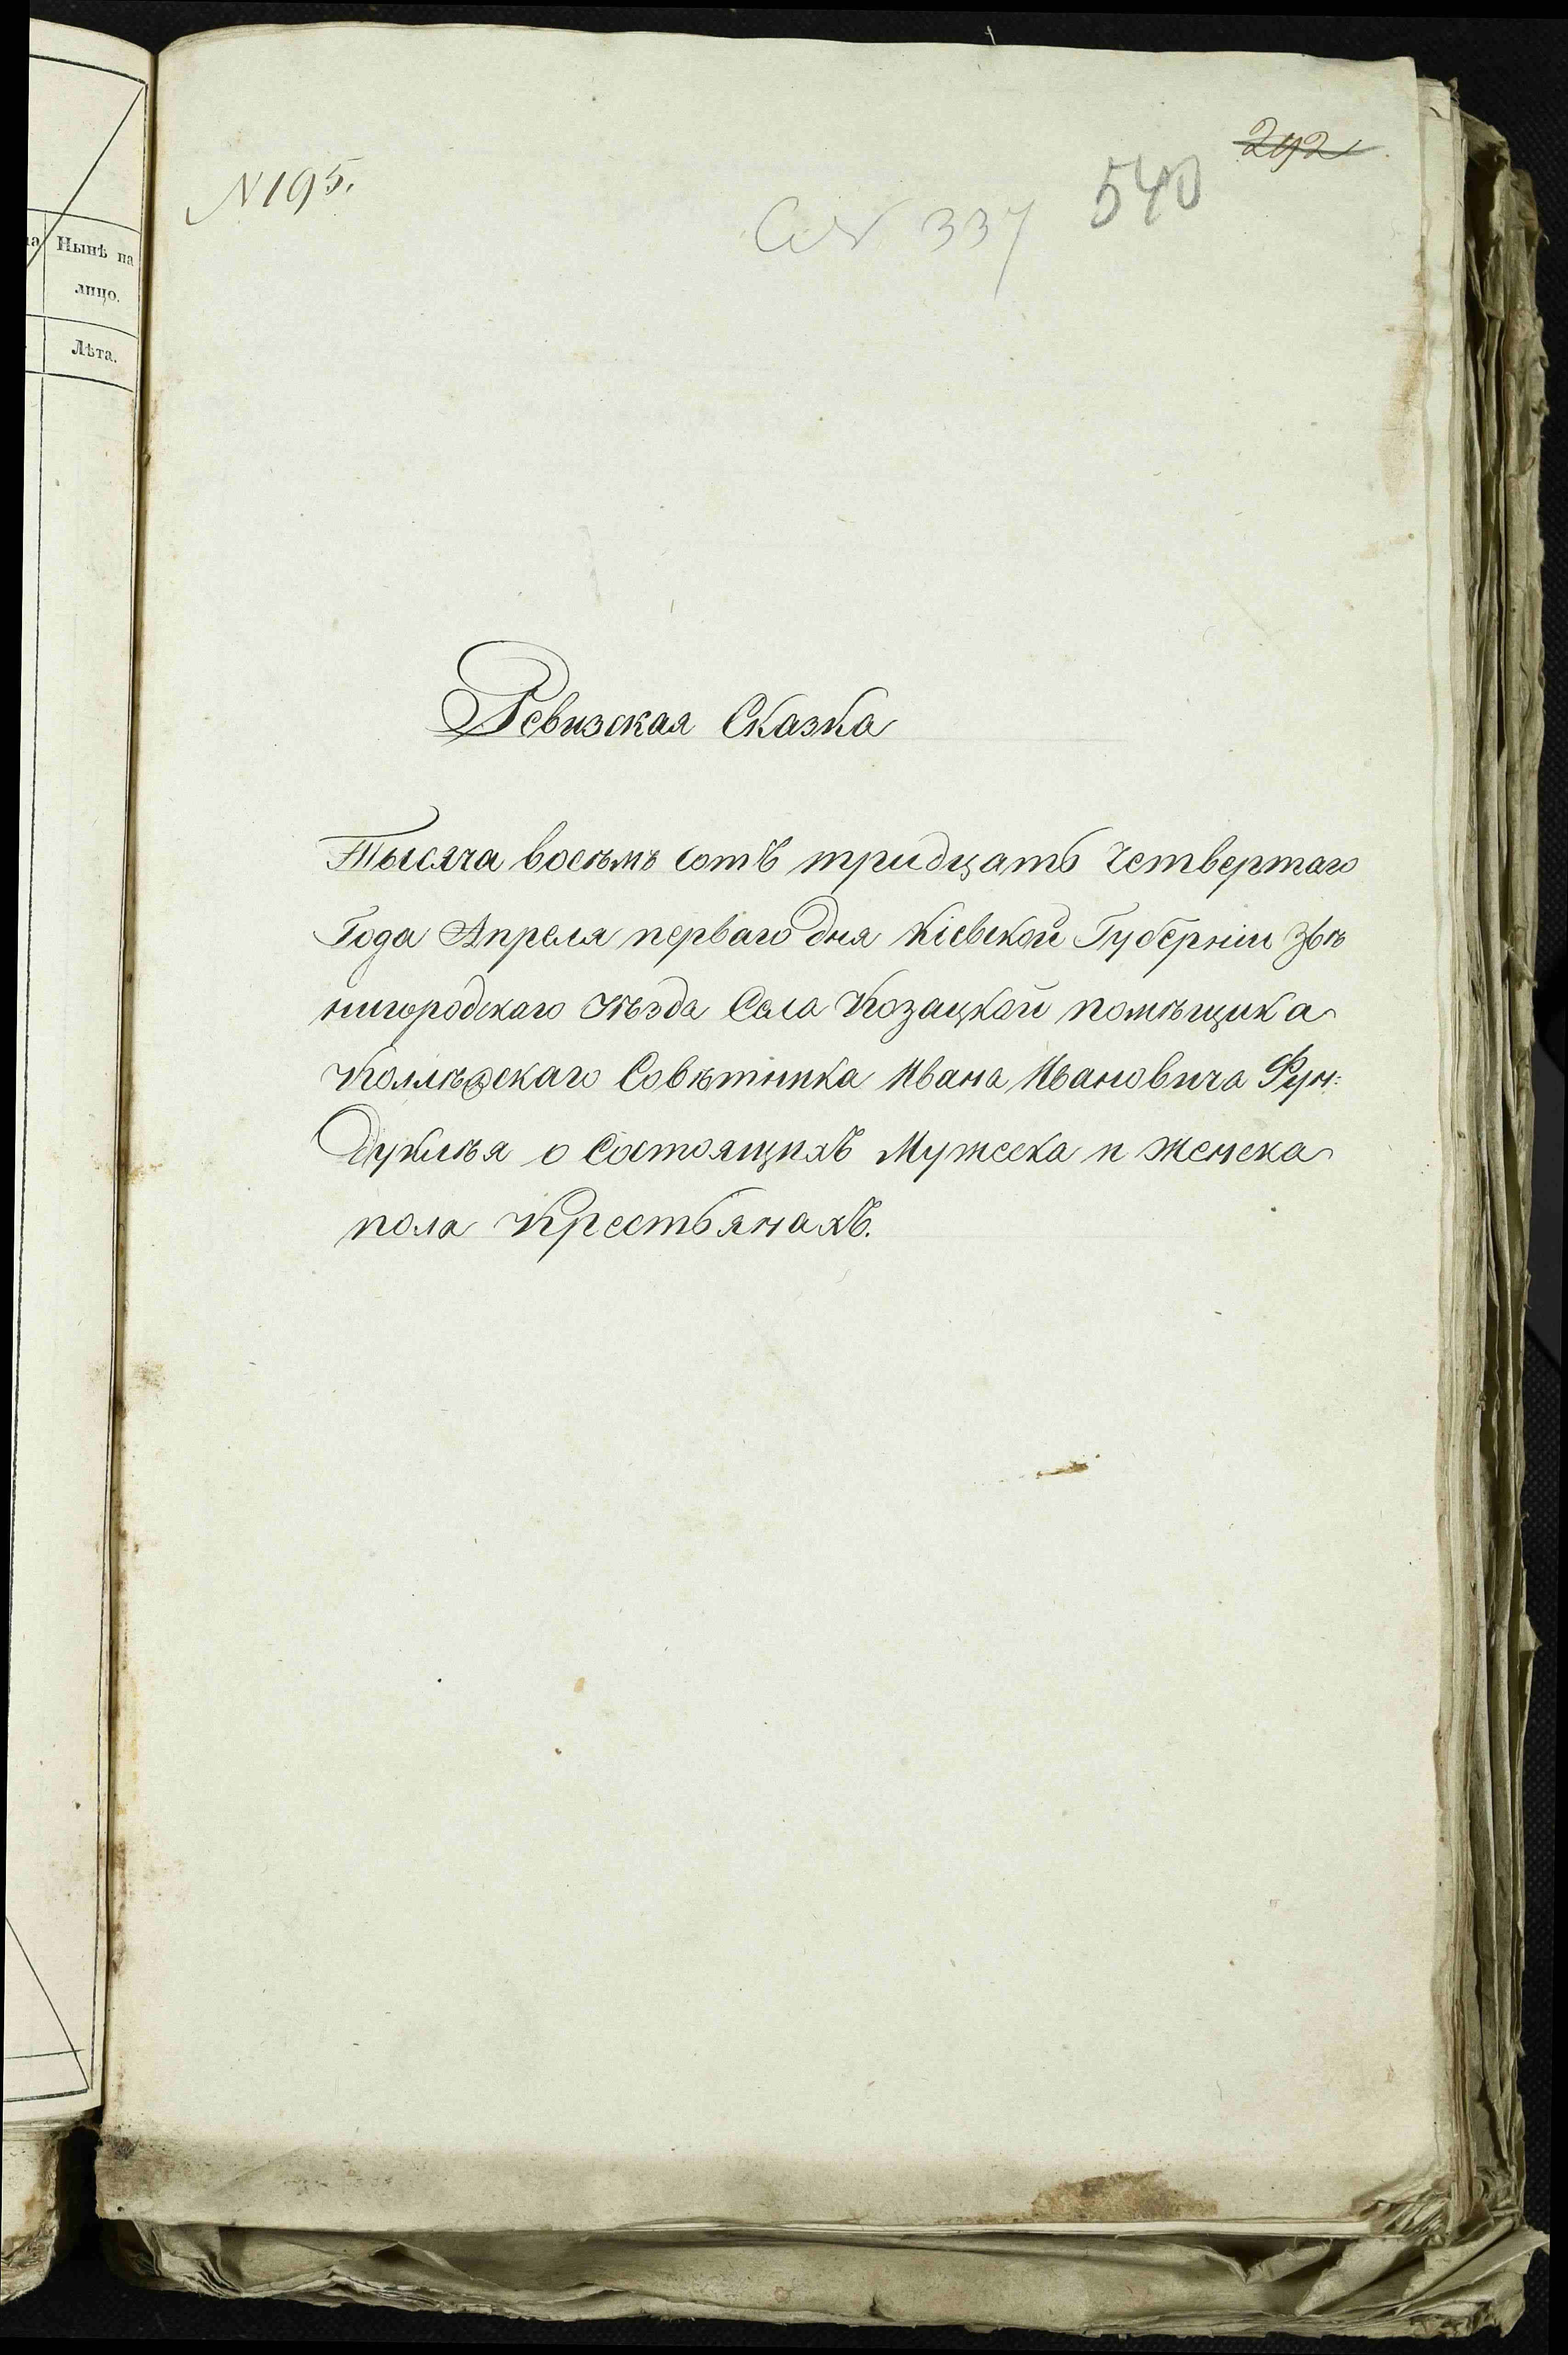 на
Нынѣ на
лицо.
Лѣта.
N 195.
337
540
292
Ревизская Сказка
Тысяча восѣмъ сотъ тридцать Четвертаго
Года Апреля перваго дня Кіевской Губерніи Звѣ
нигородскаго Уѣзда Села Козацкой помѣщика
Коллѣзскаго Совѣтника Ивана Ивановича Фун:
дуклѣя о Состоящихъ Мужеска и женска
пола Крестьянахъ.